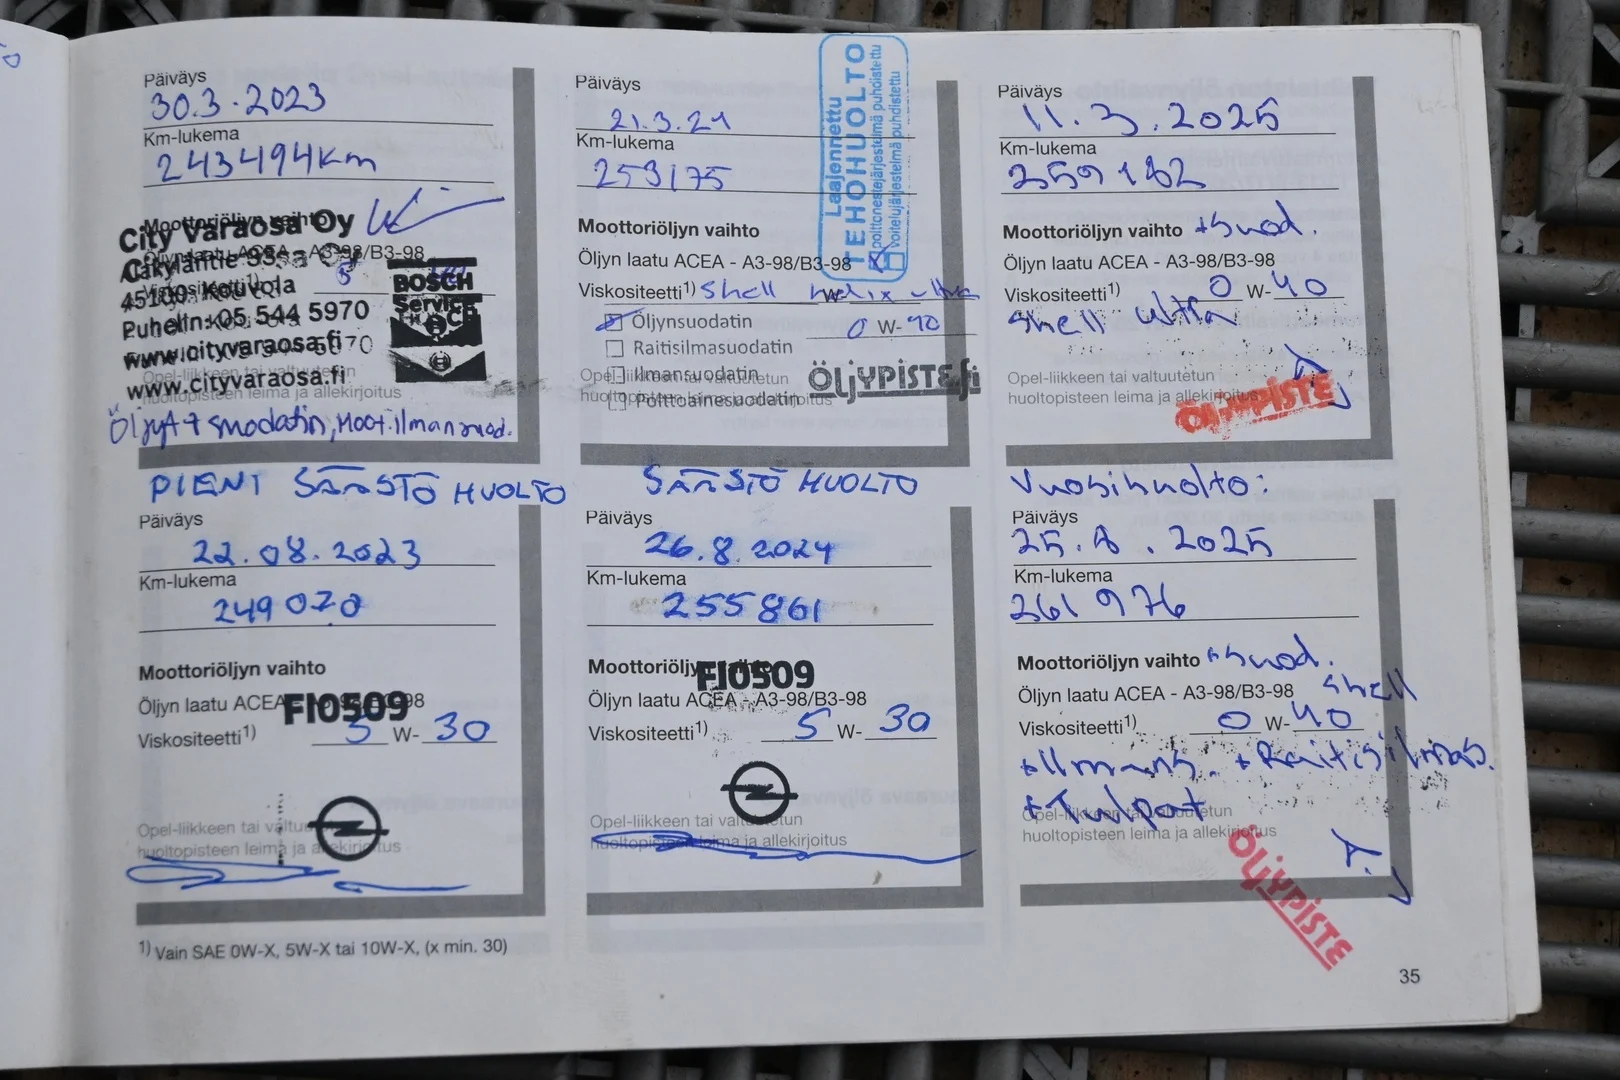 Päiväys
30.3.2023
Km-lukema
243494km
Moottoriöljyn vaihto
City Varaosa Oy
Öljyn laatu ACEA - A3-98/B3-98
45100 Kouvola
Puhelin 05 544 5970
www.cityvaraosa.fi
www.cityvaraosa.fi
BOSCH
Service
Opel-liikkeen tai valtuutetun
huoltopisteen leima ja allekirjoitus
Öljyt + suodatin, Moot.ilmansuod.
PIENI SÄÄSTÖ HUOLTO
Päiväys
22.08.2023
Km-lukema
249070
Moottoriöljyn vaihto
Öljyn laatu ACEA - A3-98/B3-98
FI0509
Viskositeetti1) 5 W- 30
Opel-liikkeen tai valtuutetun
huoltopisteen leima ja allekirjoitus
1) Vain SAE 0W-X, 5W-X tai 10W-X, (x min. 30)
Päiväys
21.3.24
Km-lukema
253175
Laajennettu
TEHOHUOLTO
polttonestejärjestelmä puhdistettu
voitelujärjestelmä puhdistettu
Moottoriöljyn vaihto
Öljyn laatu ACEA - A3-98/B3-98
Viskositeetti1) Shell helix ultra
W-
Öljynsuodatin 0 W-40
Raitisilmasuodatin
Ilmansuodatin
Polttoainesuodatin
Opel-liikkeen tai valtuutetun
huoltopisteen leima ja allekirjoitus
ÖLJYPISTE.fi
SÄÄSTÖ HUOLTO
Päiväys
26.8.2024
Km-lukema
255861
Moottoriöljyn vaihto
FI0509
Öljyn laatu ACEA - A3-98/B3-98
Viskositeetti1) 5 W- 30
Opel-liikkeen tai valtuutetun
huoltopisteen leima ja allekirjoitus
Päiväys
11.3.2025
Km-lukema
259182
Moottoriöljyn vaihto +Suod.
Öljyn laatu ACEA - A3-98/B3-98
Viskositeetti1) 0 W-40
Shell Ultra
Opel-liikkeen tai valtuutetun
huoltopisteen leima ja allekirjoitus
ÖLJYPISTE
Vuosihuolto:
Päiväys
25.8.2025
Km-lukema
261976
Moottoriöljyn vaihto +Suod.
Öljyn laatu ACEA - A3-98/B3-98 Shell
Viskositeetti1) 0 W-40
+Ilmans. +Raitisilmas.
+Tulpat
Opel-liikkeen tai valtuutetun
huoltopisteen leima ja allekirjoitus
ÖLJYPISTE
35